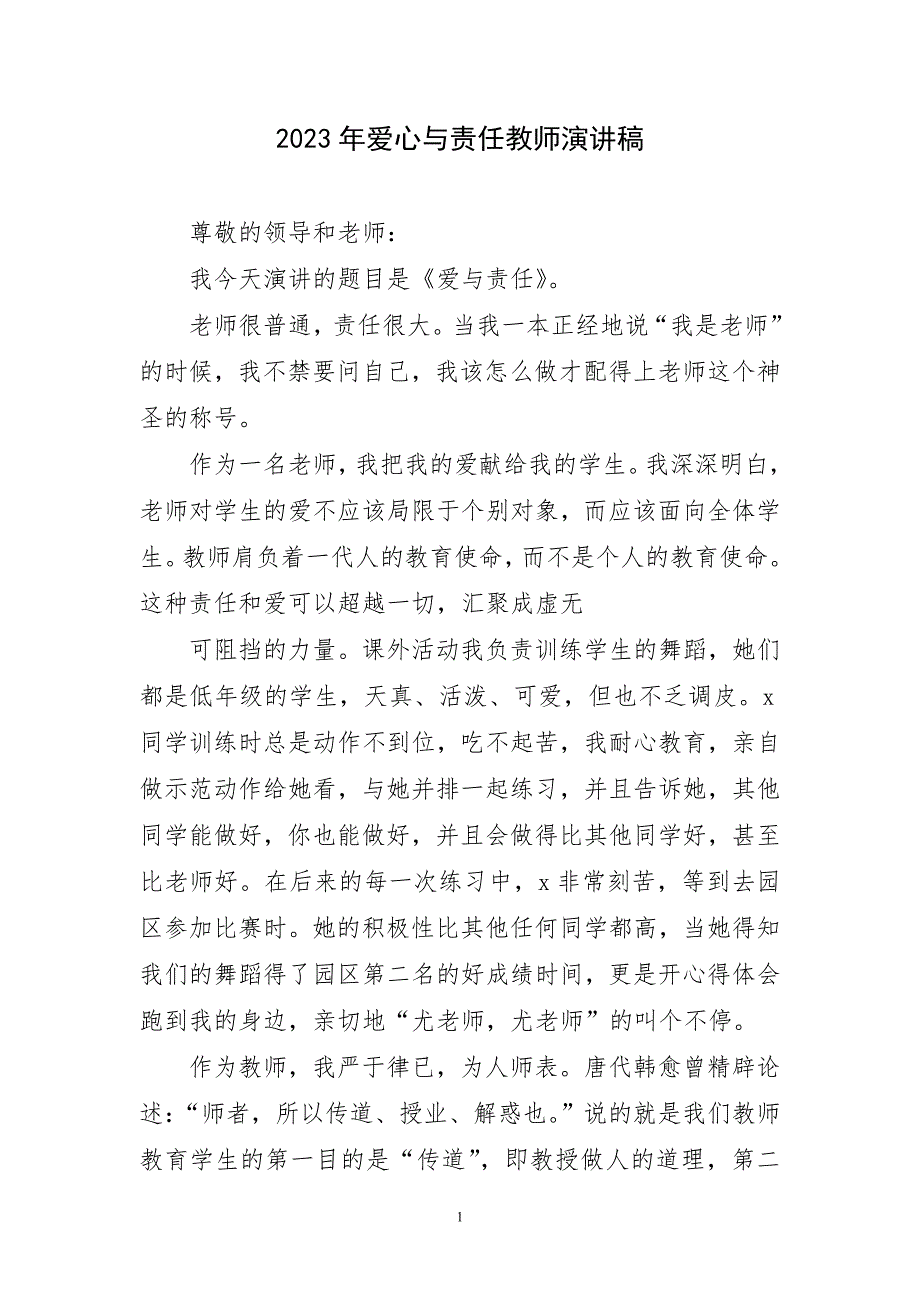 2023 年爱心与责任教师演讲稿
尊敬的领导和老师：
我今天演讲的题目是《爱与责任》。
老师很普通，责任很大。当我一本正经地说“我是老师”
的时候，我不禁要问自己，我该怎么做才配得上老师这个神
圣的称号。
作为一名老师，我把我的爱献给我的学生。我深深明白，
老师对学生的爱不应该局限于个别对象，而应该面向全体学
生。教师肩负着一代人的教育使命，而不是个人的教育使命。
这种责任和爱可以超越一切，汇聚成虚无
可阻挡的力量。课外活动我负责训练学生的舞蹈，她们
都是低年级的学生，天真、活泼、可爱，但也不乏调皮。x
同学训练时总是动作不到位，吃不起苦，我耐心教育，亲自
做示范动作给她看，与她并排一起练习，并且告诉她，其他
同学能做好，你也能做好，并且会做得比其他同学好，甚至
比老师好。在后来的每一次练习中，x 非常刻苦，等到去园
区参加比赛时。她的积极性比其他任何同学都高，当她得知
我们的舞蹈得了园区第二名的好成绩时间，更是开心得体会
跑到我的身边，亲切地“尤老师，尤老师”的叫个不停。
作为教师，我严于律已，为人师表。唐代韩愈曾精辟论
述：“师者，所以传道、授业、解惑也。”说的就是我们教师
教育学生的第一目的是“传道”，即教授做人的道理，第二
1